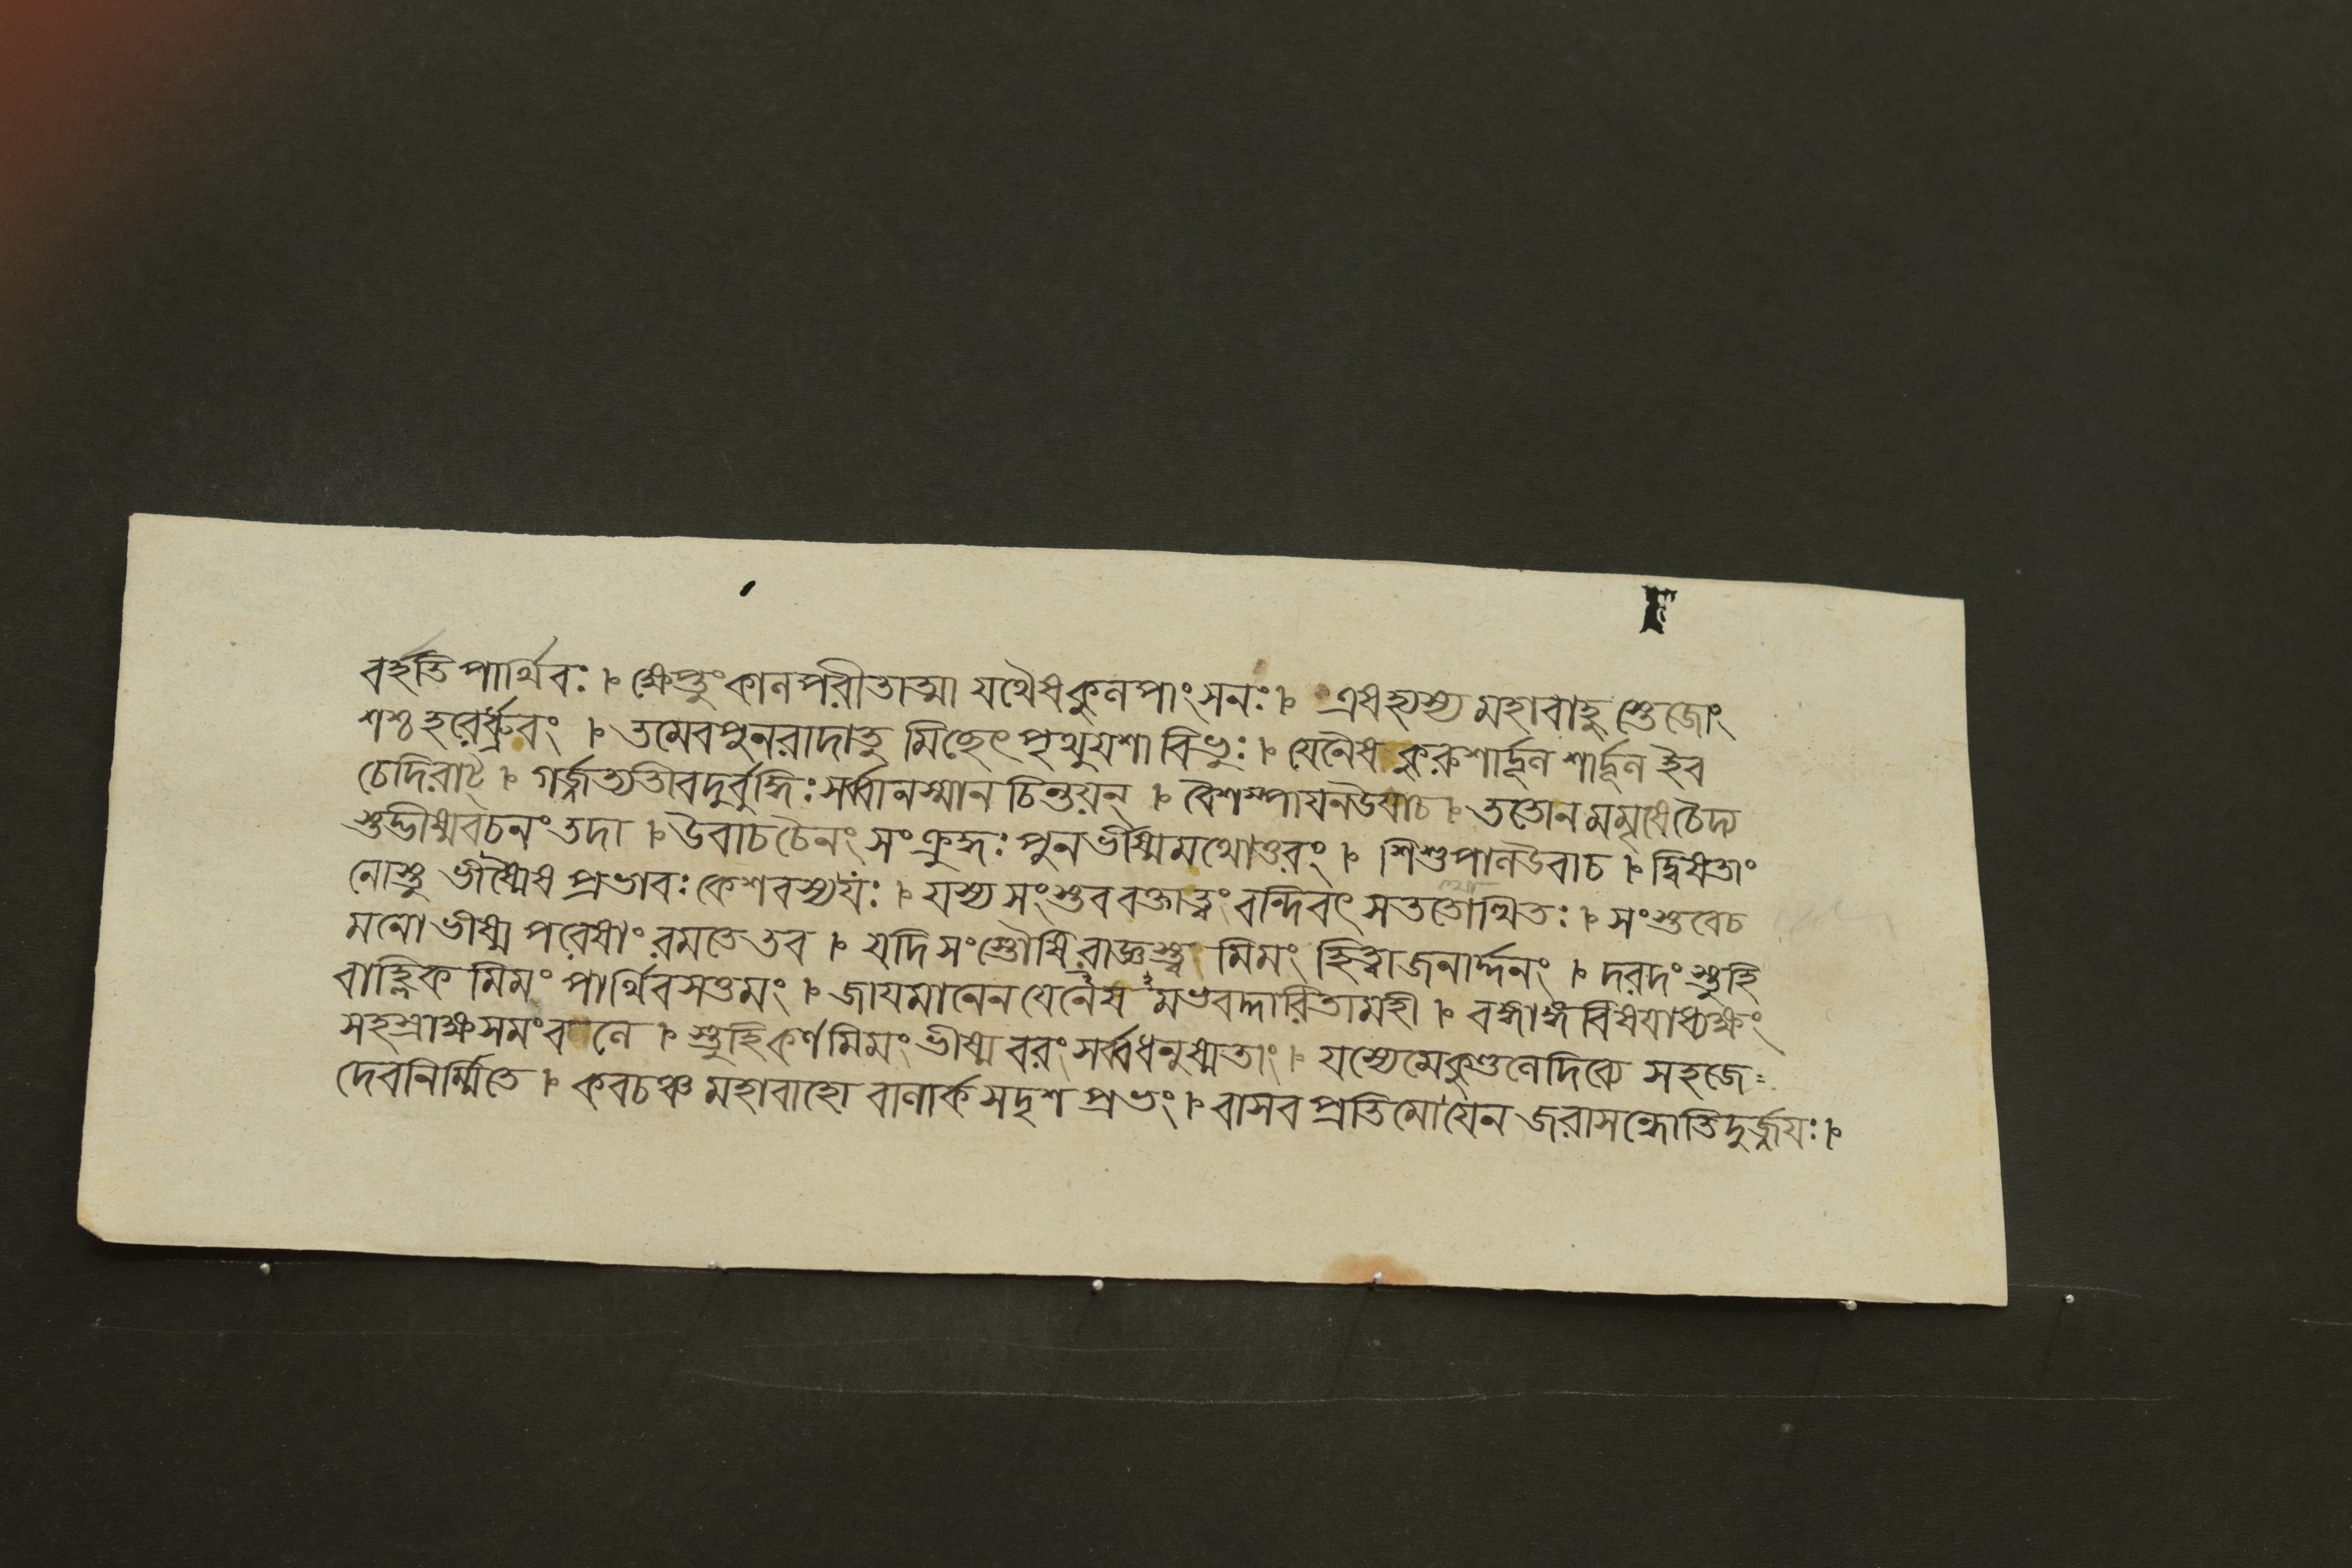 বর্হতি পার্থিবঃ । ক্ষেপ্তুং কালপরীতাত্মা যথৈষ কুলপাংসনঃ । এষহ্যস্য মহাবাহু স্তেজোং
শশ্চ হরের্ধ্রুবং । তমেবপুনরাদাতু মিচ্ছেৎ পৃথুযশা বিভুঃ । যেনৈষ কুরুশার্দ্দূল শার্দ্দূল ইব
চেদিরাট্ । গর্জ্জত্যতীবদুর্বুদ্ধিঃ সর্ব্বানস্মান চিন্তয়ন্ । বৈশম্পাযনউবাচ । ততোন মমৃষে চৈদ্য
স্তদ্ভীষ্মবচনং তদা । উবাচ চৈনং সংক্রুদ্ধঃ পুনর্ভীষ্মমথোত্তরং । শিশুপালউবাচ । দ্বিষতাং
নোস্তু ভীষ্মৈষ প্রভাবঃ কেশবস্য যঃ । যস্য সংস্তব বক্তাত্বং বন্দিবৎ সততোত্থিতঃ । সংস্তবেচ
মনো ভীষ্ম পরেষাং রমতে তব । যদি সংস্তৌষি রাজ্ঞস্ত্ব মিমং হিত্বা জনার্দ্দনং । দরদং স্তুহি
বাহ্লিক মিমং পার্থিবসত্তমং । জাযমানেন যেনৈষ মভবদ্দারিতামহী । বঙ্গাঙ্গ বিষযাধ্যক্ষং
সহস্রাক্ষসমং বলে । স্তুহি কর্ণ মিমং ভীষ্ম বরং সর্ব্বধনুষ্মতাং । যস্যেমে কুণ্ডলে দিব্যে সহজে
দেবনির্ম্মিতে । কবচঞ্চ মহাবাহো বালার্ক সদৃশ প্রভং । বাসব প্রতিমো যেন জরাসন্ধোতিদুর্জ্জযঃ ।